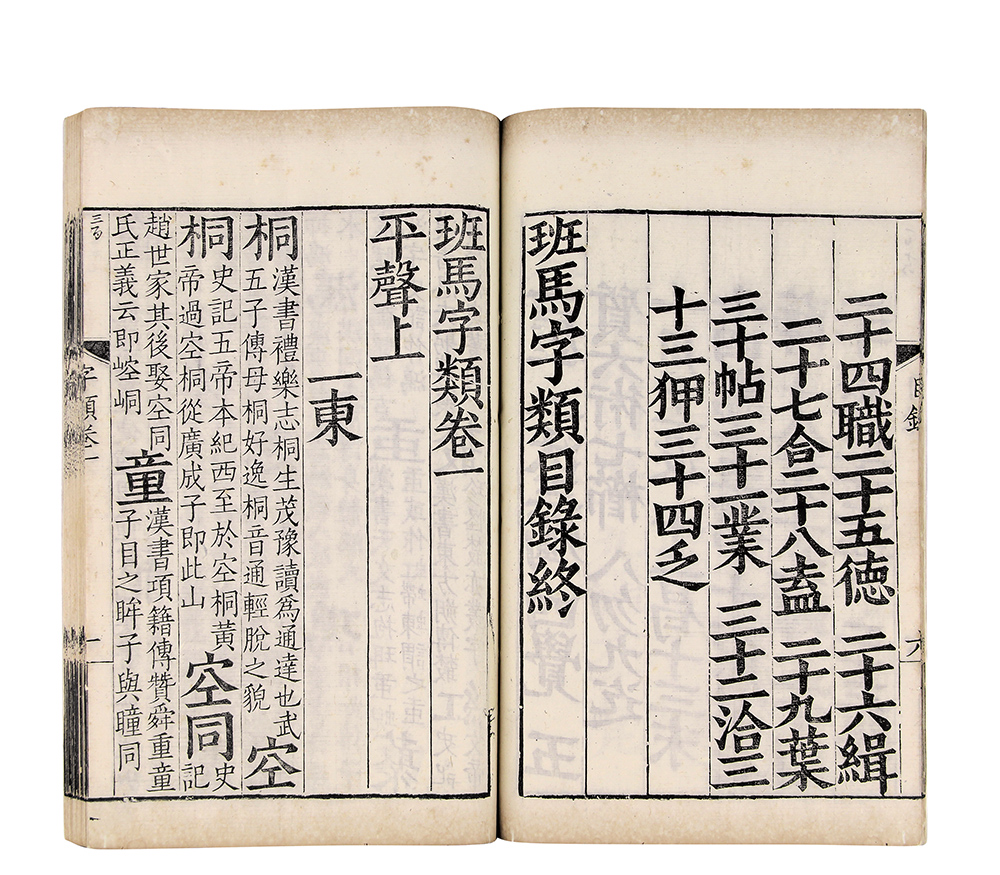 目錄
六
二十四職二十五徳 二十六緝
二十七合二十八盍 二十九葉
三十帖三十一業 三十二洽三
十三狎三十四乏
班馬字類目錄終
班馬字類卷一
平聲上
一東
桐漢書禮樂志桐生茂豫讀爲通達也武
五子傳母桐好逸桐音通輕脫之貌空
桐史記五帝本紀西至於空桐黃
帝過空桐從廣成子即此山空同史
記
趙世家其後娶空同
氏正義云即崆峒童漢書項籍傳贊舜重童
子目之眸子與瞳同
字類卷一
一